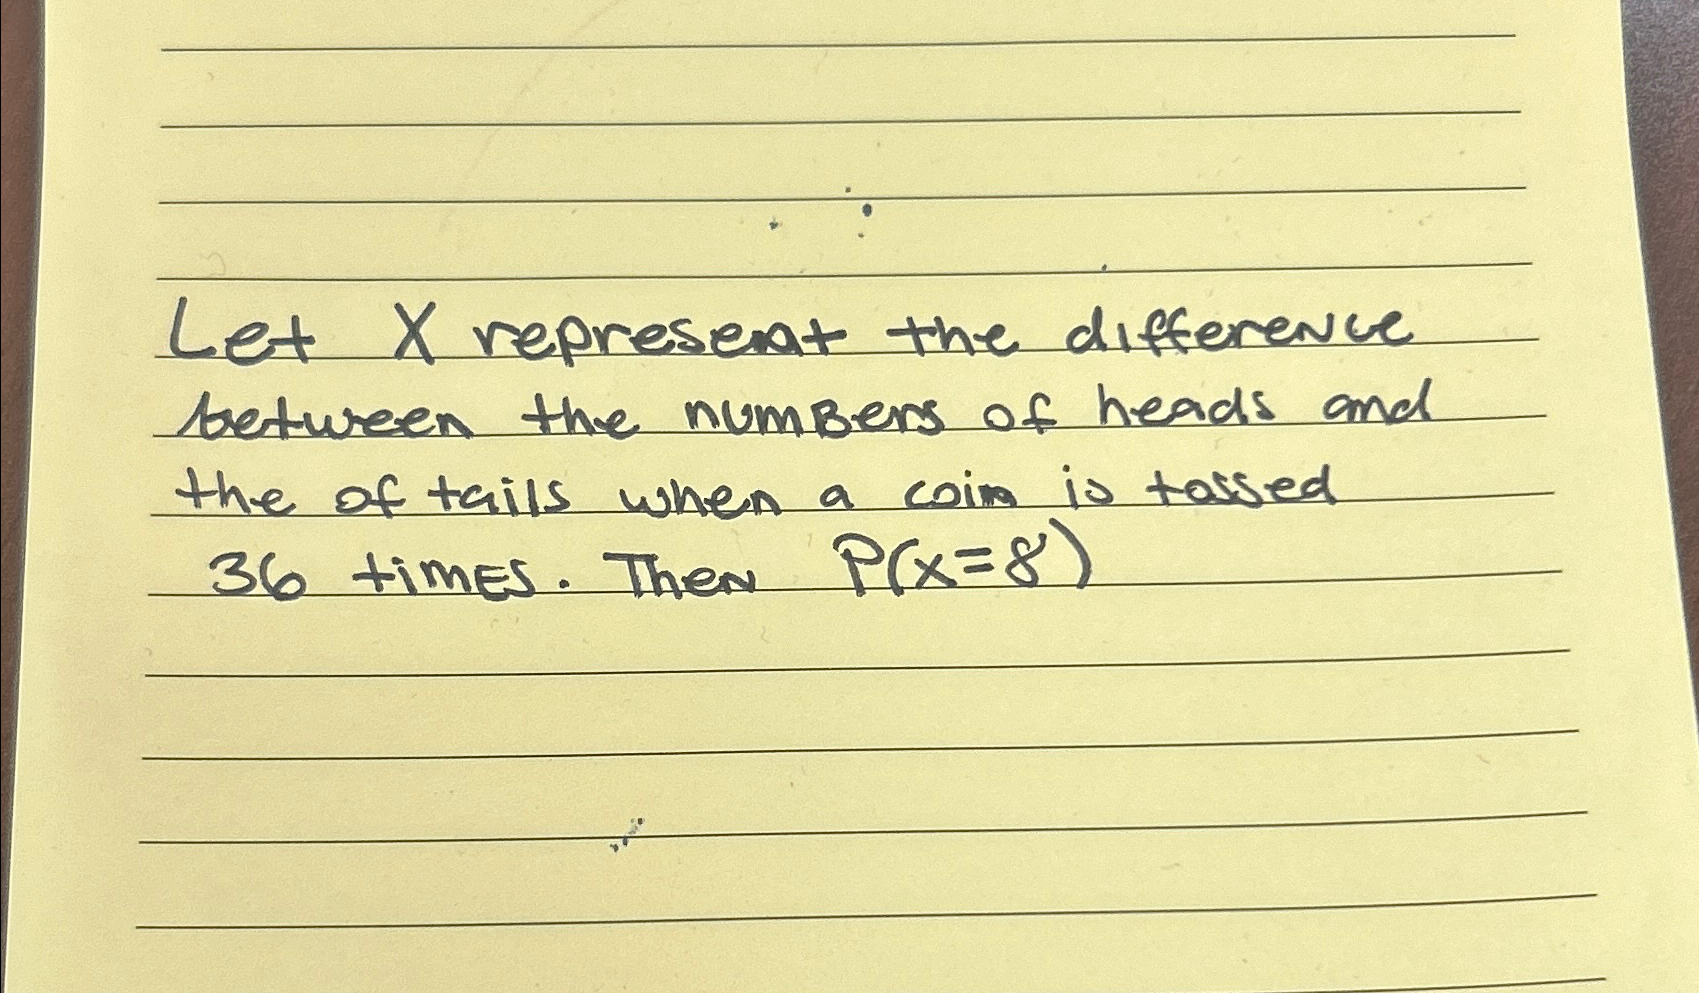 Let X represent the difference
between the numBers of heads and
the of tails when a coin is tossed
36 timES. Then P(x=8)